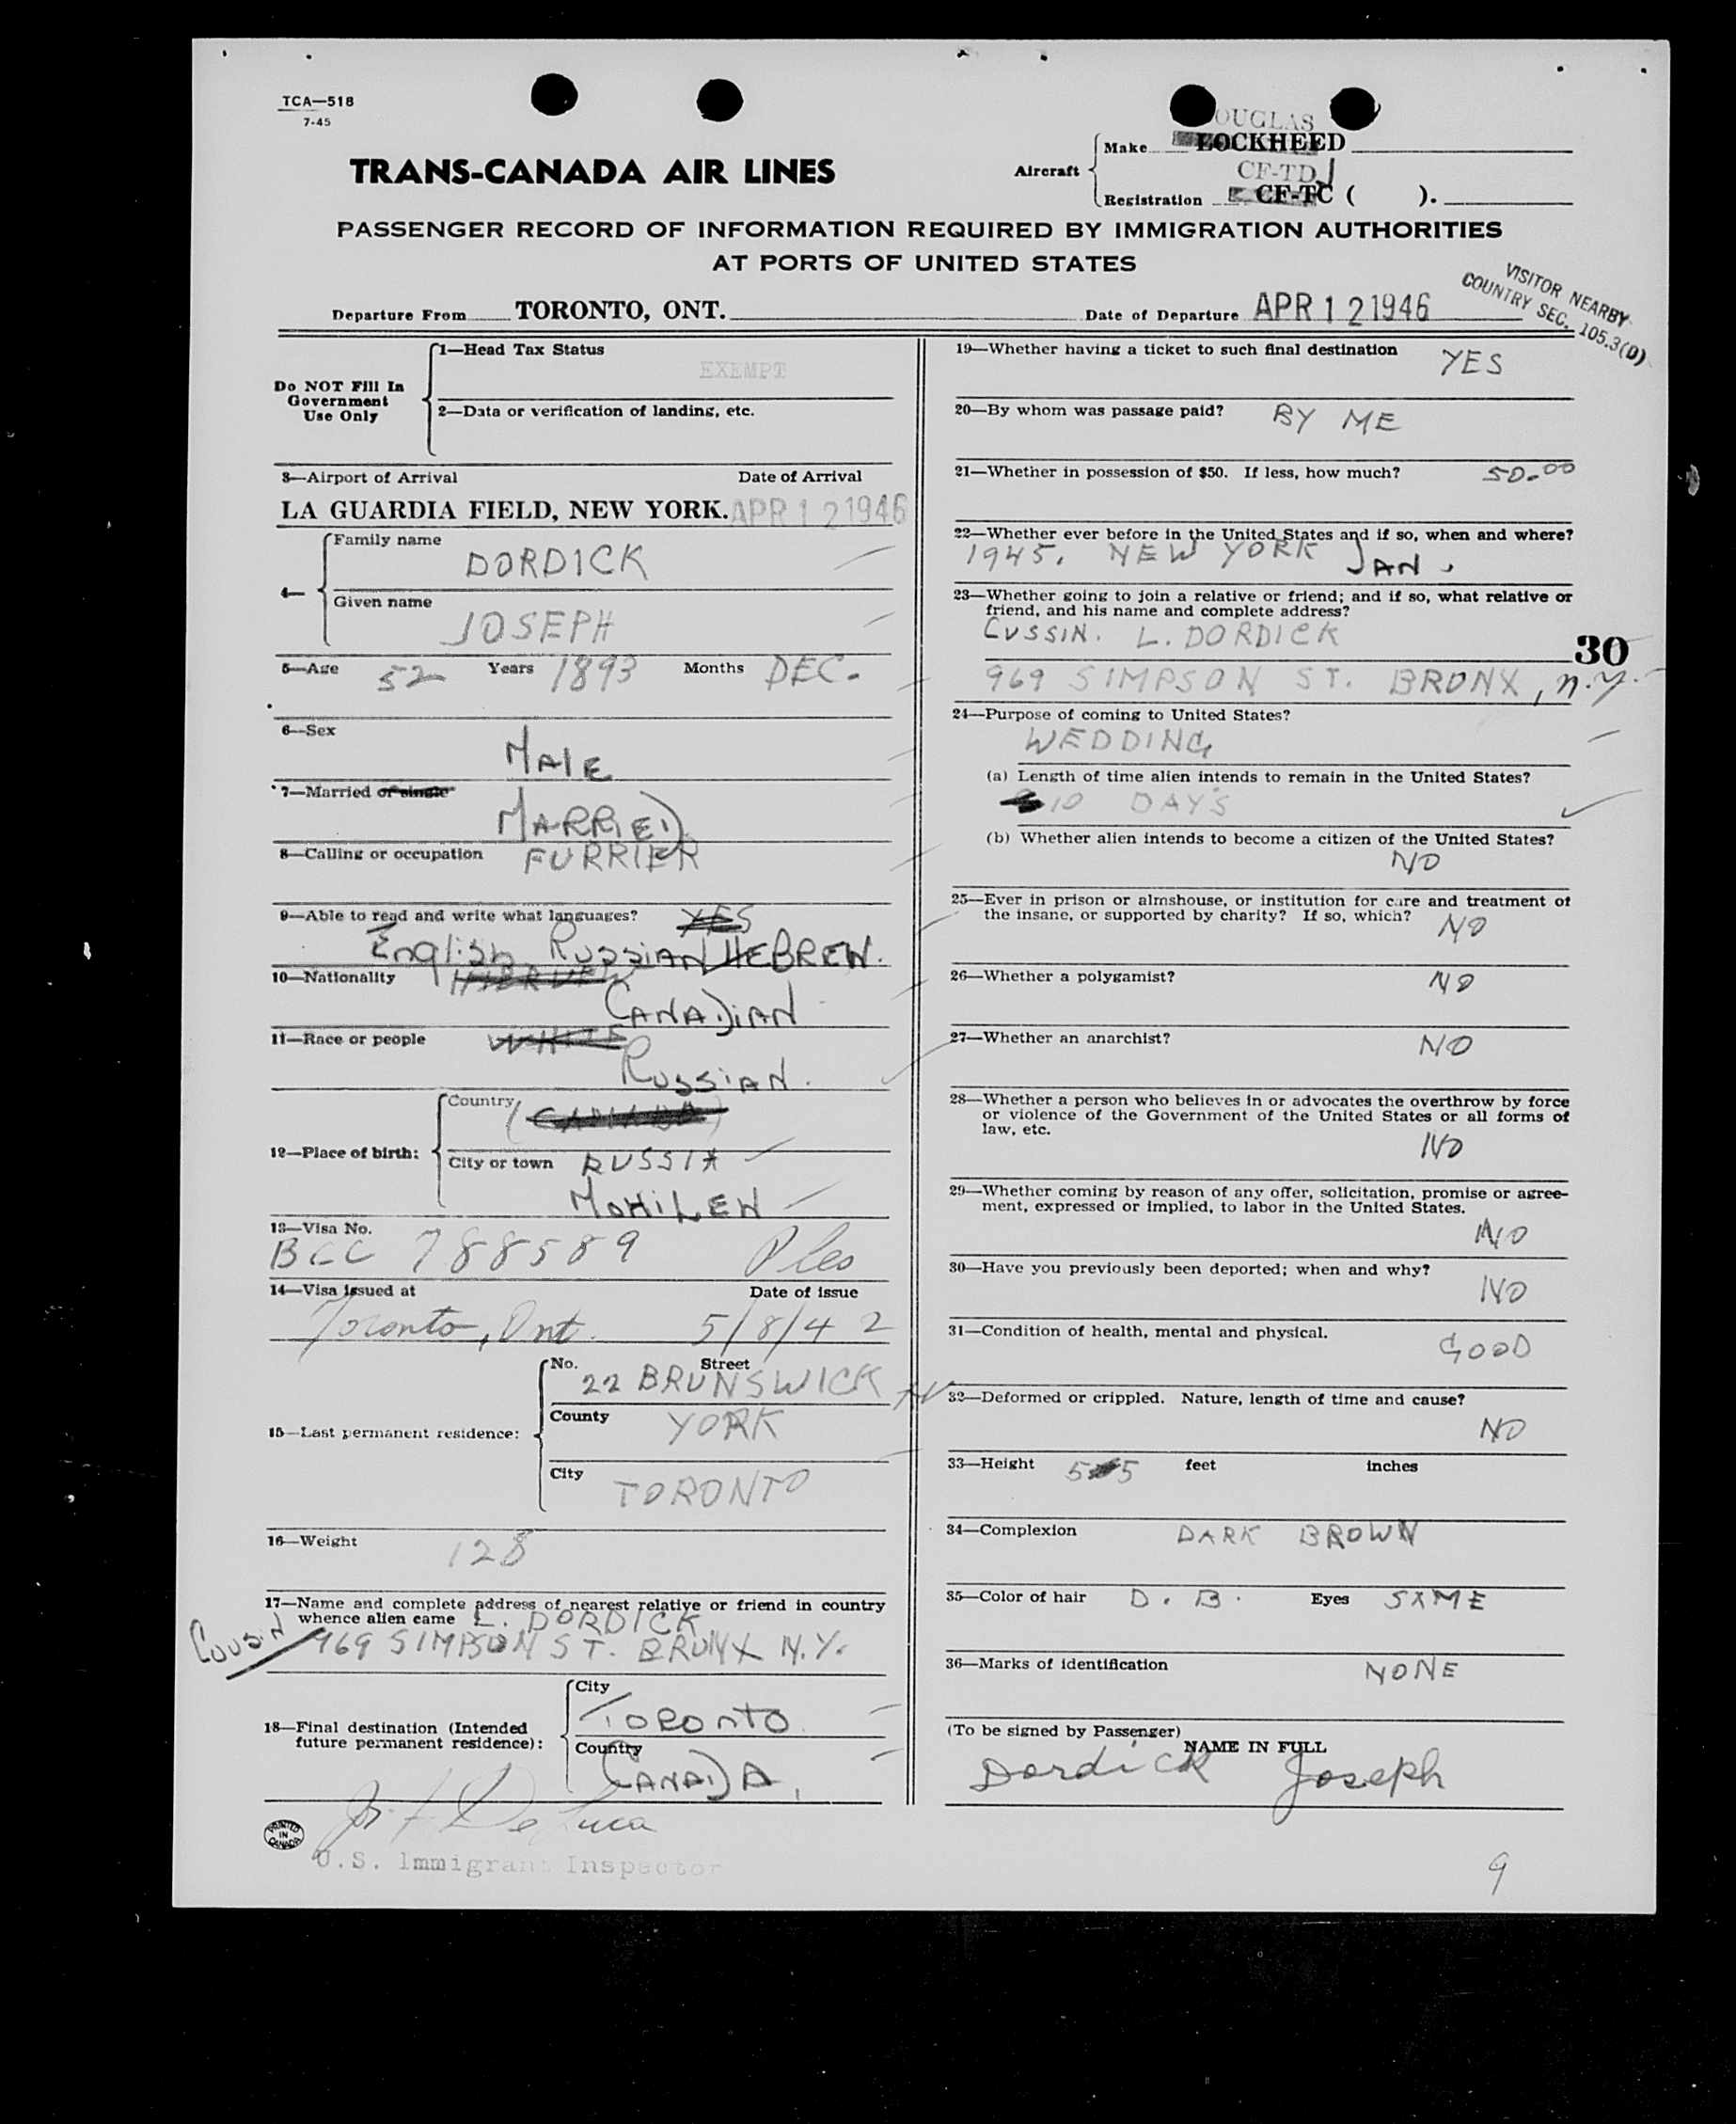 TCA—518
7-45
TRANS-CANADA AIR LINES
Aircraft
Make LOCKHEED
OUGLAS
CF-TDJ
Registration CF-TC ( ).
PASSENGER RECORD OF INFORMATION REQUIRED BY IMMIGRATION AUTHORITIES
AT PORTS OF UNITED STATES
VISITOR NEARBY
COUNTRY SEC. 105.3(D)
Departure From TORONTO, ONT. Date of Departure APR 12 1946
Do NOT Fill In
Government
Use Only
1—Head Tax Status
EXEMPT
2—Data or verification of landing, etc.
3—Airport of Arrival Date of Arrival
LA GUARDIA FIELD, NEW YORK. APR 12 1946
4—
Family name
DORDICK
Given name
JOSEPH
5—Age 52 Years 1893 Months DEC.
6—Sex
MALE
7—Married or single
MARRIED
8—Calling or occupation FURRIER
9—Able to read and write what languages? YES
English RUSSIAN HEBREW.
10—Nationality
CANADIAN
11—Race or people WHITE
RUSSIAN.
12—Place of birth:
Country (CANADA)
City or town RUSSIA
MOHILEW
13—Visa No.
BCC 788589
14—Visa issued at Date of issue
Toronto, Ont. 5/8/42
15—Last permanent residence:
No. Street
22 BRUNSWICK AV
County YORK
City
TORONTO
16—Weight 128
17—Name and complete address of nearest relative or friend in country
whence alien came L. DORDICK
COUSIN 969 SIMPSON ST. BRONX N.Y.
18—Final destination (Intended
future permanent residence):
City
TORONTO
Country
CANADA.
De Luca
U.S. Immigrant Inspector
PRINTED
IN
CANADA
19—Whether having a ticket to such final destination YES
20—By whom was passage paid? BY ME
21—Whether in possession of $50. If less, how much? 50.00
22—Whether ever before in the United States and if so, when and where?
1945. NEW YORK JAN.
23—Whether going to join a relative or friend; and if so, what relative or
friend, and his name and complete address?
CUSSIN. L. DORDICK
30
969 SIMPSON ST. BRONX, N.Y.
24—Purpose of coming to United States?
WEDDING
(a) Length of time alien intends to remain in the United States?
10 DAY'S
(b) Whether alien intends to become a citizen of the United States?
NO
25—Ever in prison or almshouse, or institution for care and treatment of
the insane, or supported by charity? If so, which? NO
26—Whether a polygamist? NO
27—Whether an anarchist? NO
28—Whether a person who believes in or advocates the overthrow by force
or violence of the Government of the United States or all forms of
law, etc.
NO
29—Whether coming by reason of any offer, solicitation, promise or agree-
ment, expressed or implied, to labor in the United States.
NO
30—Have you previously been deported; when and why?
NO
31—Condition of health, mental and physical.
GOOD
32—Deformed or crippled. Nature, length of time and cause?
NO
33—Height 5 5 feet inches
34—Complexion DARK BROWN
35—Color of hair D. B. Eyes SAME
36—Marks of identification NONE
(To be signed by Passenger)
NAME IN FULL
Dordick Joseph
9